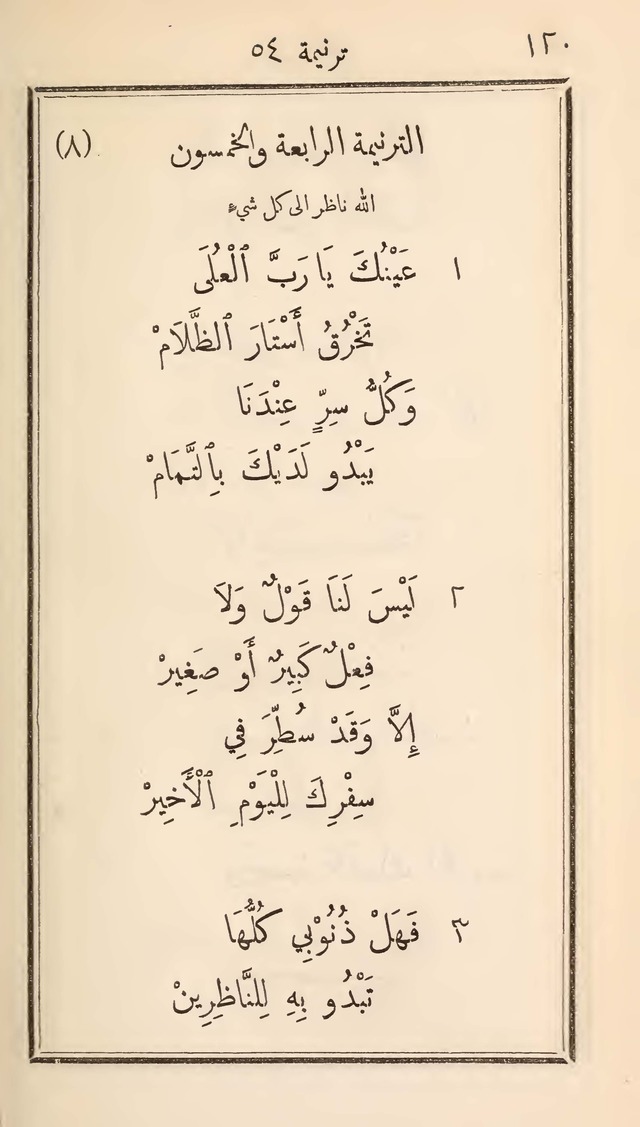 ١٢٠
ترنيمة ٥٤
الترنيمة الرابعة والخمسون (٨)
الله ناظر الى كل شيءٍ
١ عَيْنُكَ يَا رَبَّ ٱلْعُلَى
تَخْرُقُ أَسْتَارَ ٱلظَّلَامْ
وَكُلُّ سِرٍّ عِنْدَنَا
يَبْدُو لَدَيْكَ بِٱلتَّمَامْ
٢ لَيْسَ لَنَا قَوْلٌ وَلَا
فِعْلٌ كَبِيرٌ أَوْ صَغِيرْ
إِلَّا وَقَدْ سُطِّرَ فِي
سِفْرِكَ لِلْيَوْمِ ٱلْأَخِيرْ
٣ فَهَلْ ذُنُوْبِي كُلُّهَا
تَبْدُو بِهِ لِلنَّاظِرِينْ